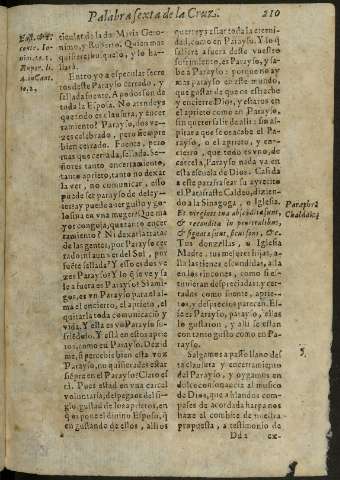 Palabra sexta de la Cruz.
210
ticular de la do: Maria Gero-
nimo, y Roberto. Quien mas
quisiere, busquelo, y lo ha-
llará.
Entro yo a especular secre
tos deste Parayso cerrado, y
sellada fuente. A dos son de
toda la Esposa. No atendeys
que todo es clausura, y encer
ramiento? Parayso, dos ve-
zes celebrado, pero siempre
bien cerrado. Fuente, pero
mas que cerrada, sellada. Se-
ñores tanto encerramiento,
tanto aprieto, tanto no dexar
la ver, no comunicar,
puede ser parayso de deley-
tes: ay puede aver gusto y go-
losina en vna muger? Que ma
yor congoja, que tanto encer
ramiento? Ni dexarla tratar
de las gentes, por Parayso cer
rado; ni aun a ver del Sol, por
fuente sellada? Y esso es dos ve
zes Parayso? Y lo q̃ ve y sa
le a fuera es Parayso? Si ami-
gos, es vn Parayso para el al-
ma el encierro, el aprieto, el
quitarla toda comunicaciõ y
vida. Y ella es vn Parayso su-
friẽdolo. Y està en estos aprie
tos, como en Parayso. Dezid
me, si percebis bien esta voz
Parayso, no quisierades estar
siẽpre en el Parayso? Claro es
tá. Pues estad en vna carcel
voluntaria, despegaos del si-
glo, gustad de los aprietos, en
q̃ os pone el diuino Esposo, q̃
en gustando de ellos, alli os
quereys estar toda la eterni-
dad, como en Parayso. Y lo q̃
saliere a fuera deste vuestro
sufrimiento, es Parayso, y sa-
boa Parayso: porque no ay
mas Parayso en este mundo,
que gustar de que os estreche
y encierre Dios, y estaros en
el aprieto como en Parayso,
sin querer salir de alli: sin as-
pirar a que se os acabe el Pa-
rayso, o el aprieto, y en-
cierro, que todo es vno, de
carcel a Parayso nada va en
esta escuela de Dios. Casi da
a este parafrasear su ayrecito
el Parafraste Caldeo, diziendo
a la Sinagoga, o Iglesia.
Et virgines tuæ absconditæ sunt,
& reconditæ in penetralibus,
& sigenta sunt, sicut sunt, &c.
Tus donzellas, o Iglesia
Madre, tus mugeres hijas, a-
llà las tienes escondidas, allà
en los rincones, como si es-
tuuieran despreciadas, y cer-
radas como fuente, aprie-
tos, y desprecios parecen. Ess-
se es Parayso, para si, ellas se
lo gustaron, y alli se estan
con tanto gusto como en Pa-
rayso.
Salgamos a passo llano des
ta clausura y encerramiento
del Parayso, y oygamos en
dulce consonancia al musico
de Dios, que ablandos com-
pases de acordada harpa nos
haze el combite de nuestra
propuesta, a testimonio de
Dd 2
ex-
Paraphras.
Chaldaic.
5.